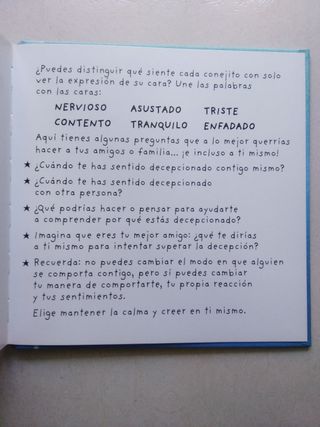 ¿Puedes distinguir qué siente cada conejito con solo
ver la expresión de su cara? Une las palabras
con las caras:
NERVIOSO ASUSTADO TRISTE
CONTENTO TRANQUILO ENFADADO
Aquí tienes algunas preguntas que a lo mejor querrías
hacer a tus amigos o familia... ¡e incluso a ti mismo!
★ ¿Cuándo te has sentido decepcionado contigo mismo?
★ ¿Cuándo te has sentido decepcionado
con otra persona?
★ ¿Qué podrías hacer o pensar para ayudarte
a comprender por qué estás decepcionado?
★ Imagina que eres tu mejor amigo: ¿qué te dirías
a ti mismo para intentar superar la decepción?
★ Recuerda: no puedes cambiar el modo en que alguien
se comporta contigo, pero sí puedes cambiar
tu manera de comportarte, tu propia reacción
y tus sentimientos.
Elige mantener la calma y creer en ti mismo.